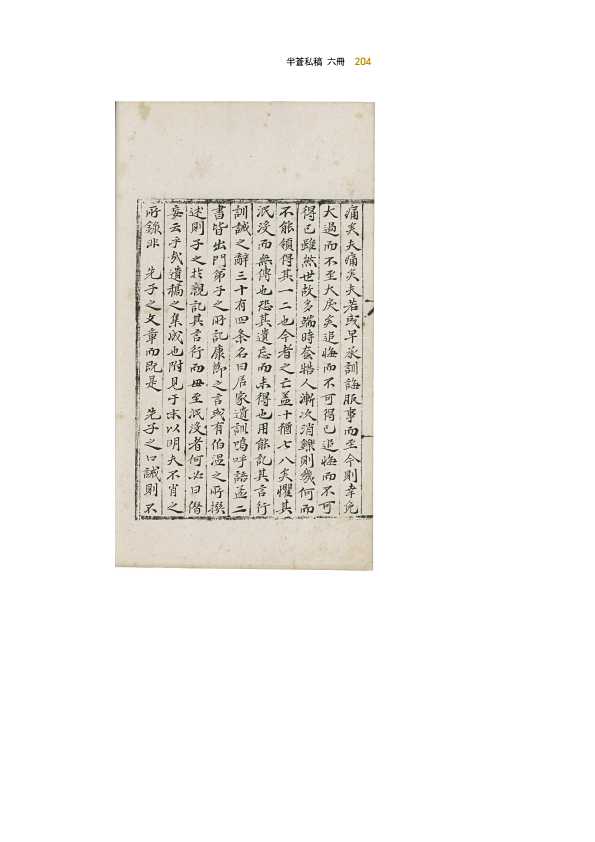 半蒼私稿 六冊 204
痛矣夫痛矣夫若或早承訓誨服事而至今則幸免
大過而不至大戾矣追悔而不可得已追悔而不可
得已雖然世故多端時蚕牿人漸次消鑠則幾何而
不能領得其一二也今者之亡盖十猶七八矣懼其
泯沒而無傳也恐其遺忘而未得也用餘記其言行
訓誡之辭三十有四条名曰居家遺訓嗚呼語孟二
書皆出門弟子之所記康節之言或有伯温之所撰
述則子之於親記其言行而毋至泯沒者何必曰僭
妄云乎哉遺稿之集成也附見于末以明夫不肖之
所錄非 先子之文章而既是 先子之口誡則不